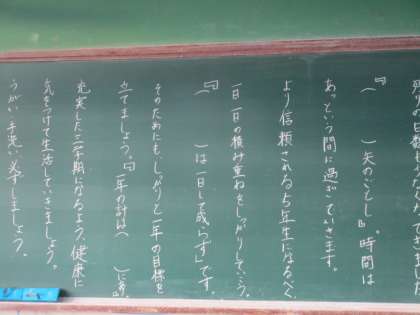 『(　　　)矢のごとし』。時間は
あっという間に過ぎていきます。
より信頼される5年生になるべく、
一日一日の積み重ねをしっかりしていこう。
『(　　　)は一日して成らず』です。
そのためにもしっかりと一年の目標を
立てましょう。『一年の計は(　　　)にあり』
充実した三学期になるよう健康に
気をつけて生活していきましょう。
うがい・手洗い必ずしましょう。